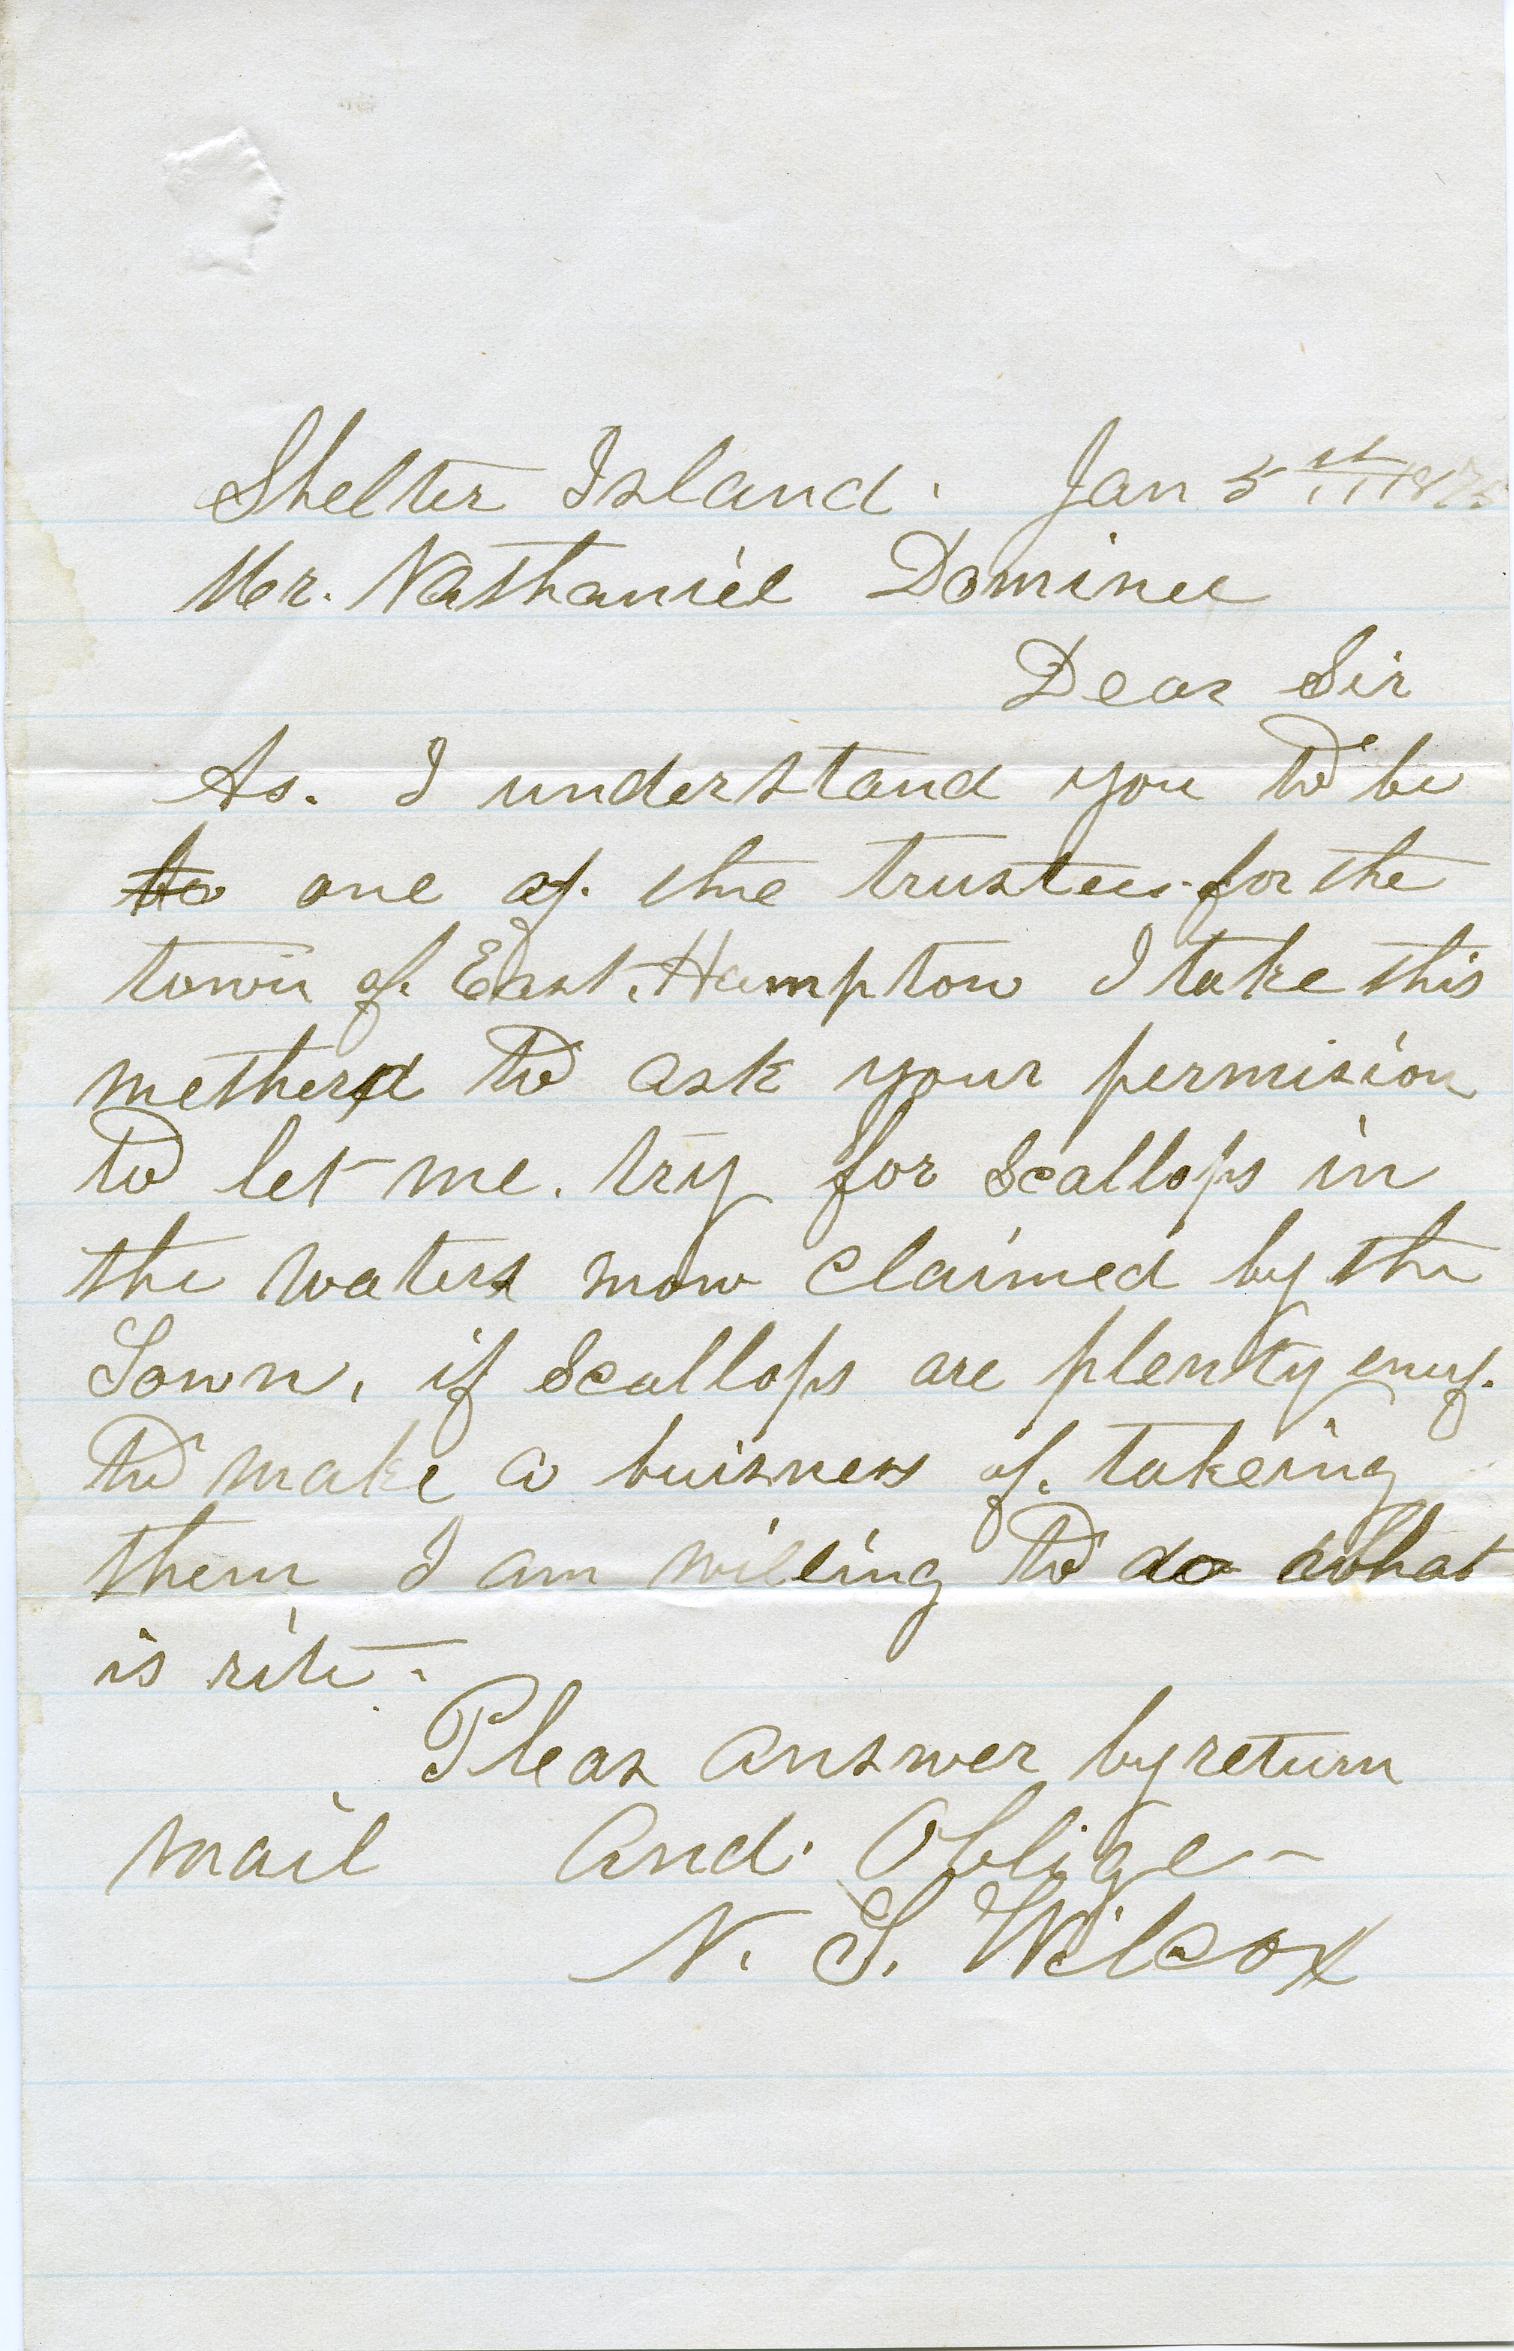 Shelter Island. Jan 5
Mr. Nathaniel Dominee
Dear Sir
As. I understand you to be
to one of. the trustees. for the
town of. East. Hampton I take this
metherd to ask your permision
to let me. try for Scallops in
the waters now claimed by the
Town, if Scallops are plenty enuf.
to make a buisness of. takeing
them I am willing to do what
is rite.
Pleas answer by return
mail and. Oblige
N. S. Wilcox